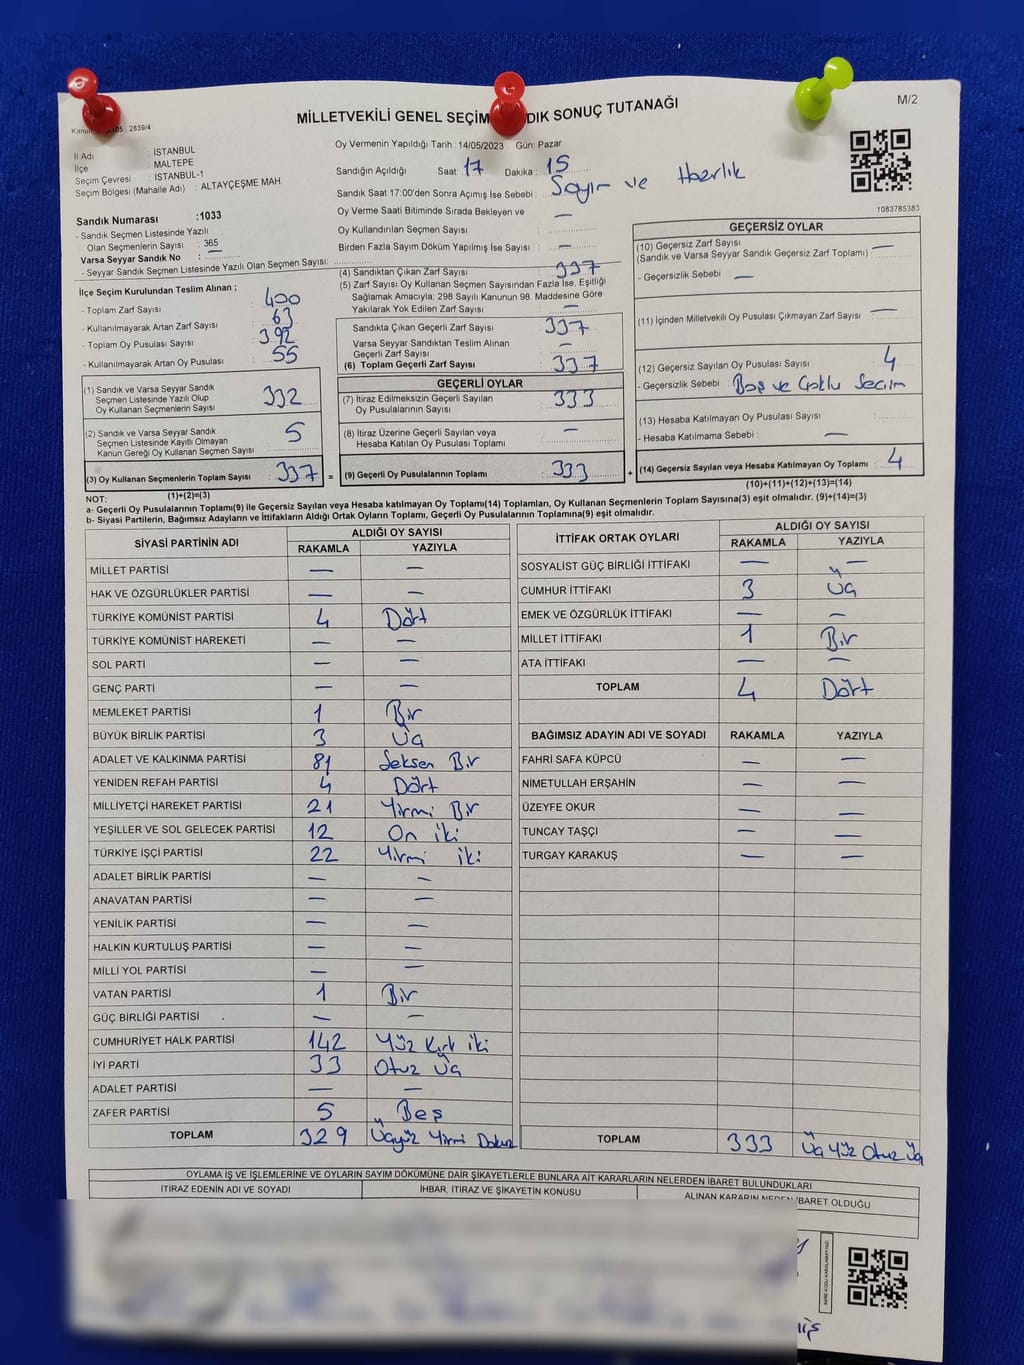 M/2
MİLLETVEKİLİ GENEL SEÇİM DIK SONUÇ TUTANAĞI
Kanun 2839/4
İl Adı : İSTANBUL
İlçe : MALTEPE
Seçim Çevresi : İSTANBUL-1
Seçim Bölgesi (Mahalle Adı) : ALTAYÇEŞME MAH.
Sandık Numarası :1033
- Sandık Seçmen Listesinde Yazılı
Olan Seçmenlerin Sayısı : 365
Varsa Seyyar Sandık No : —
- Seyyar Sandık Seçmen Listesinde Yazılı Olan Seçmen Sayısı:
İlçe Seçim Kurulundan Teslim Alınan ;
- Toplam Zarf Sayısı : 400
- Kullanılmayarak Artan Zarf Sayısı : 63
- Toplam Oy Pusulası Sayısı : 392
- Kullanılmayarak Artan Oy Pusulası : 55
(1) Sandık ve Varsa Seyyar Sandık
Seçmen Listesinde Yazılı Olup
Oy Kullanan Seçmenlerin Sayısı : 332
(2) Sandık ve Varsa Seyyar Sandık
Seçmen Listesinde Kayıtlı Olmayan
Kanun Gereği Oy Kullanan Seçmen Sayısı : 5
(3) Oy Kullanan Seçmenlerin Toplam Sayısı : 337 =
(1)+(2)=(3)
Oy Vermenin Yapıldığı Tarih : 14/05/2023 Gün: Pazar
Sandığın Açıldığı Saat: 17 Dakika : 15
Sandık Saat 17:00'den Sonra Açımış İse Sebebi : Sayım ve Hazırlık
Oy Verme Saati Bitiminde Sırada Bekleyen ve
Oy Kullandırılan Seçmen Sayısı : —
Birden Fazla Sayım Döküm Yapılmış İse Sayısı : —
(4) Sandıktan Çıkan Zarf Sayısı : 337
(5) Zarf Sayısı Oy Kullanan Seçmen Sayısından Fazla İse, Eşitliği
Sağlamak Amacıyla; 298 Sayılı Kanunun 98. Maddesine Göre
Yakılarak Yok Edilen Zarf Sayısı : —
Sandıkta Çıkan Geçerli Zarf Sayısı : 337
Varsa Seyyar Sandıktan Teslim Alınan
Geçerli Zarf Sayısı : —
(6) Toplam Geçerli Zarf Sayısı : 337
GEÇERLİ OYLAR
(7) İtiraz Edilmeksizin Geçerli Sayılan
Oy Pusulalarının Sayısı : 333
(8) İtiraz Üzerine Geçerli Sayılan veya
Hesaba Katılan Oy Pusulası Toplamı : —
(9) Geçerli Oy Pusulalarının Toplamı : 333 +
1083785383
GEÇERSİZ OYLAR
(10) Geçersiz Zarf Sayısı
(Sandık ve Varsa Seyyar Sandık Geçersiz Zarf Toplamı) : —
- Geçersizlik Sebebi : —
(11) İçinden Milletvekili Oy Pusulası Çıkmayan Zarf Sayısı : —
(12) Geçersiz Sayılan Oy Pusulası Sayısı : 4
- Geçersizlik Sebebi : Boş ve Çoklu Seçim
(13) Hesaba Katılmayan Oy Pusulası Sayısı :
- Hesaba Katılmama Sebebi : —
(14) Geçersiz Sayılan veya Hesaba Katılmayan Oy Toplamı : 4
(10)+(11)+(12)+(13)=(14)
NOT:
a- Geçerli Oy Pusulalarının Toplamı(9) ile Geçersiz Sayılan veya Hesaba katılmayan Oy Toplamı(14) Toplamları, Oy Kullanan Seçmenlerin Toplam Sayısına(3) eşit olmalıdır. (9)+(14)=(3)
b- Siyasi Partilerin, Bağımsız Adayların ve İttifakların Aldığı Ortak Oyların Toplamı, Geçerli Oy Pusulalarının Toplamına(9) eşit olmalıdır.
SİYASİ PARTİNİN ADI ALDIĞI OY SAYISI
RAKAMLA YAZIYLA
MİLLET PARTİSİ — —
HAK VE ÖZGÜRLÜKLER PARTİSİ — —
TÜRKİYE KOMÜNİST PARTİSİ 4 Dört
TÜRKİYE KOMÜNİST HAREKETİ — —
SOL PARTİ — —
GENÇ PARTİ — —
MEMLEKET PARTİSİ 1 Bir
BÜYÜK BİRLİK PARTİSİ 3 Üç
ADALET VE KALKINMA PARTİSİ 81 Seksen Bir
YENİDEN REFAH PARTİSİ 4 Dört
MİLLİYETÇİ HAREKET PARTİSİ 21 Yirmi Bir
YEŞİLLER VE SOL GELECEK PARTİSİ 12 On iki
TÜRKİYE İŞÇİ PARTİSİ 22 Yirmi iki
ADALET BİRLİK PARTİSİ — —
ANAVATAN PARTİSİ — —
YENİLİK PARTİSİ — —
HALKIN KURTULUŞ PARTİSİ — —
MİLLİ YOL PARTİSİ — —
VATAN PARTİSİ 1 Bir
GÜÇ BİRLİĞİ PARTİSİ — —
CUMHURİYET HALK PARTİSİ 142 Yüz Kırk iki
İYİ PARTİ 33 Otuz Üç
ADALET PARTİSİ — —
ZAFER PARTİSİ 5 Beş
TOPLAM 329 Üçyüz Yirmi Dokuz
İTTİFAK ORTAK OYLARI ALDIĞI OY SAYISI
RAKAMLA YAZIYLA
SOSYALİST GÜÇ BİRLİĞİ İTTİFAKI — —
CUMHUR İTTİFAKI 3 Üç
EMEK VE ÖZGÜRLÜK İTTİFAKI — —
MİLLET İTTİFAKI 1 Bir
ATA İTTİFAKI — —
TOPLAM 4 Dört
BAĞIMSIZ ADAYIN ADI VE SOYADI RAKAMLA YAZIYLA
FAHRİ SAFA KÜPCÜ — —
NİMETULLAH ERŞAHİN — —
ÜZEYFE OKUR — —
TUNCAY TAŞÇI — —
TURGAY KARAKUŞ — —
TOPLAM 333 Üç Yüz Otuz Üç
OYLAMA İŞ VE İŞLEMLERİNE VE OYLARIN SAYIM DÖKÜMÜNE DAİR ŞİKAYETLERLE BUNLARA AİT KARARLARIN NELERDEN İBARET BULUNDUKLARI
İTİRAZ EDENİN ADI VE SOYADI İHBAR, İTİRAZ VE ŞİKAYETİN KONUSU ALINAN KARARIN NEDEN İBARET OLDUĞU